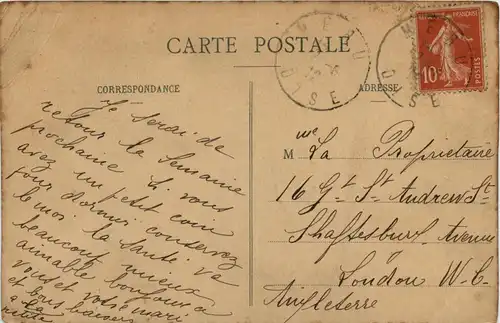 CARTE POSTALE
CORRESPONDANCE
ADRESSE
Je serai de
retour la semaine
prochaine si vous
avez un petit coin
pour dormir conservez
le moi. la santé va
beaucoup mieux
aimable bonjour à
vous et votre mari
et bons baisers
à la
petite
RÉPUBLIQUE FRANÇAISE
10c
POSTES
OISE
M me La Proprietaire
16 Gt St Andrew St
Shaftesbury Avenue
London W.C.
Angleterre